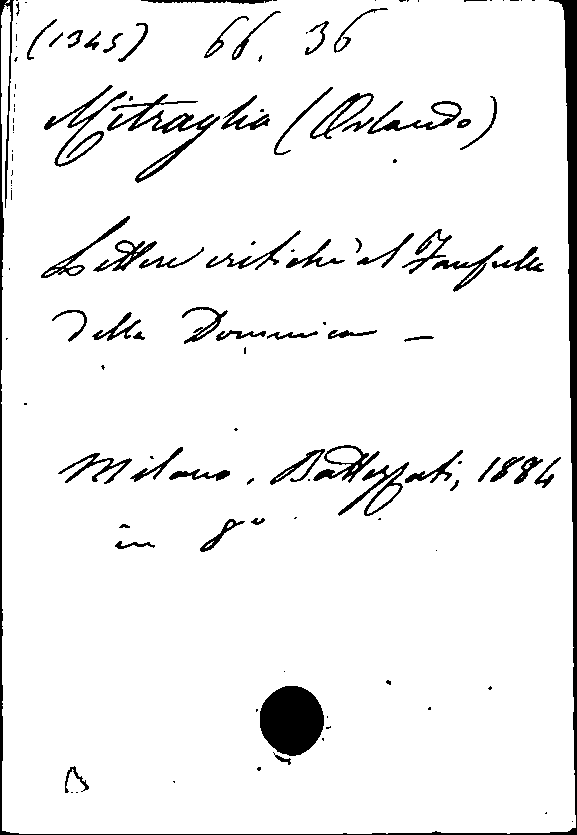 (1345) 66. 36
Mitraglia (Orlando)
Lettere critiche al Fanfulla
della Domenica —
Milano, Battezzati, 1884
in 8º